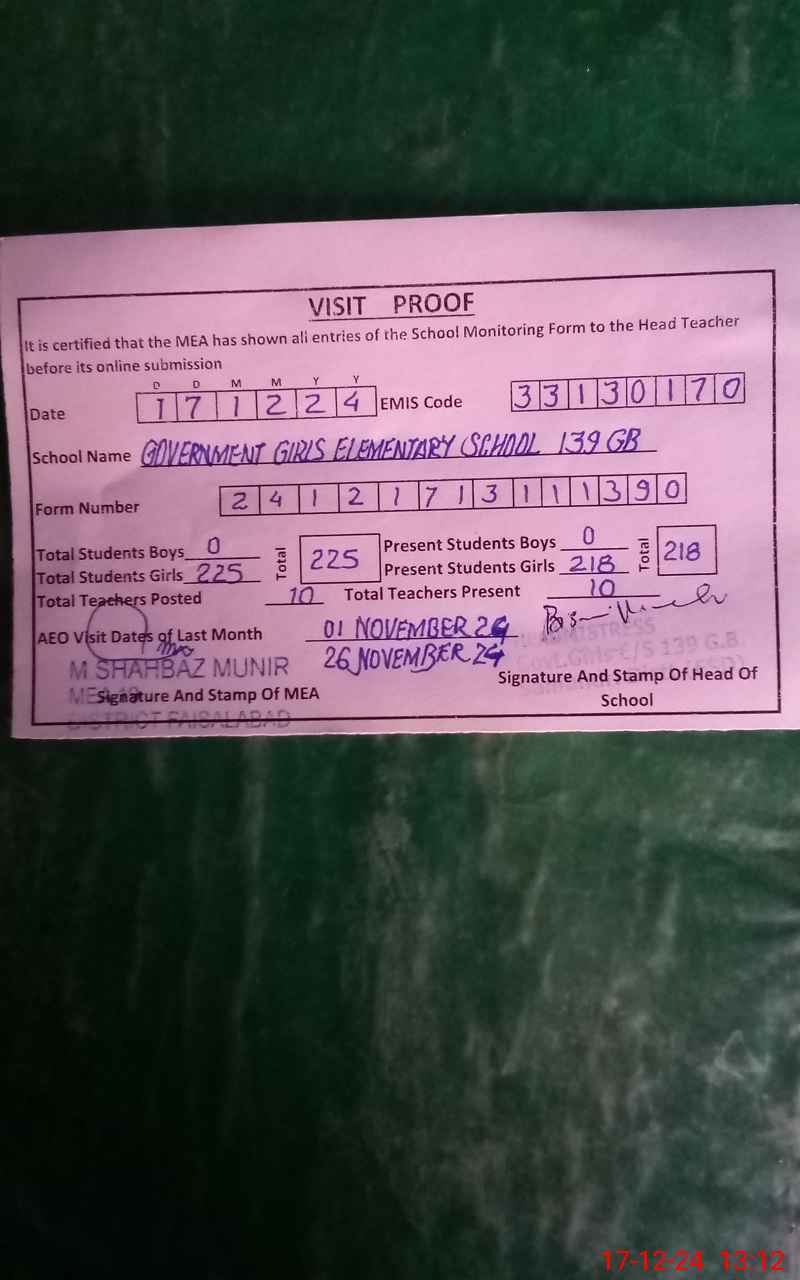 VISIT PROOF
It is certified that the MEA has shown all entries of the School Monitoring Form to the Head Teacher
before its online submission
D D M M Y Y
Date 1 7 1 2 2 4 EMIS Code 3 3 1 3 0 1 7 0
School Name GOVERNMENT GIRLS ELEMENTARY SCHOOL 139 GB
Form Number 2 4 1 2 1 7 1 3 1 1 1 3 9 0
Total Students Boys 0 Total 225 Present Students Boys 0 Total 218
Total Students Girls 225 Present Students Girls 218
Total Teachers Posted 10 Total Teachers Present 10
AEO Visit Dates of Last Month 01 NOVEMBER 24
26 NOVEMBER 24
M SHAHBAZ MUNIR
Signature And Stamp Of MEA
DISTRICT FAISALABAD
139 G.B.
Signature And Stamp Of Head Of
School
17-12-24 13:12